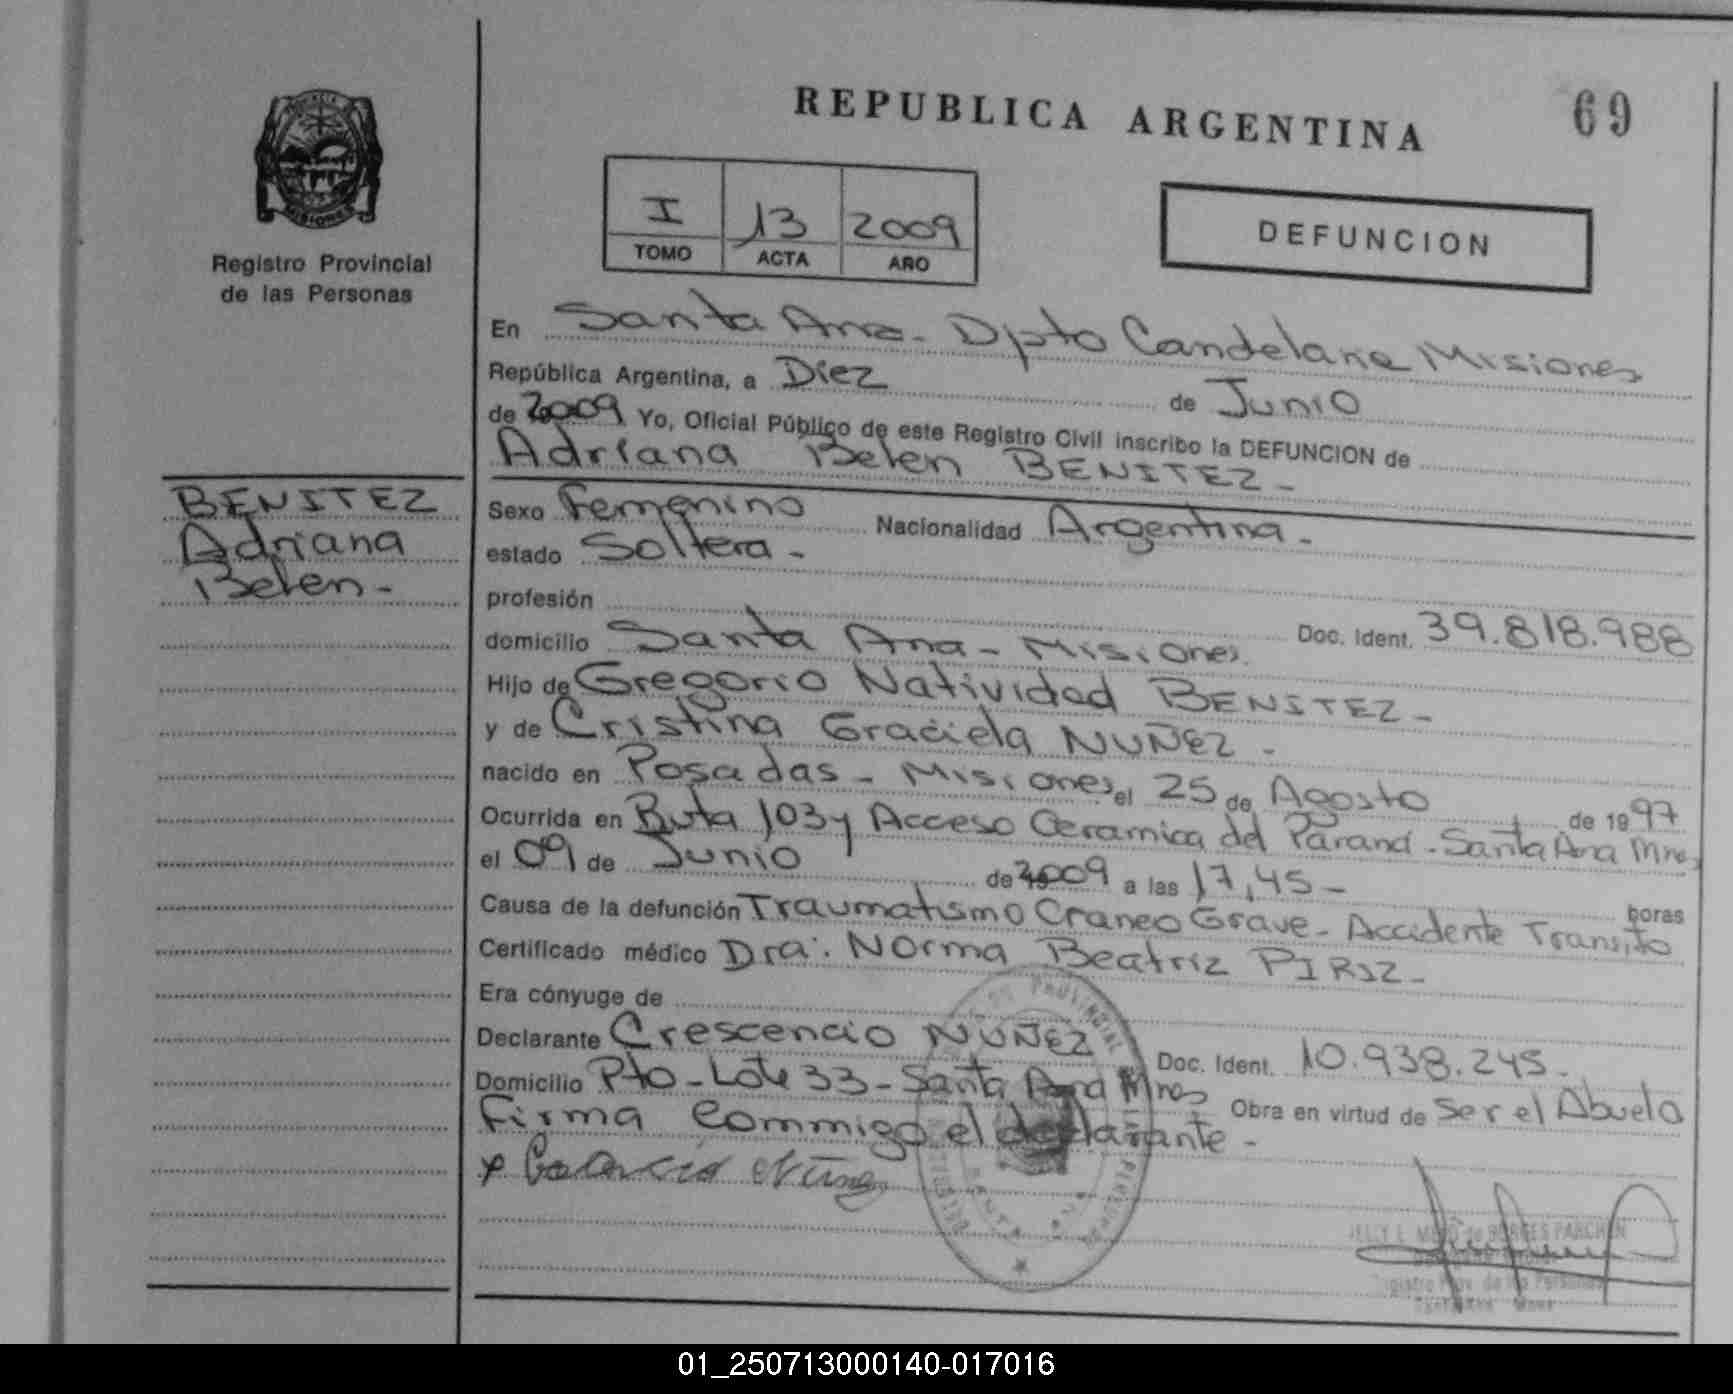 REPUBLICA ARGENTINA
69
Registro Provincial
de las Personas
I 13 2009
TOMO ACTA AÑO
DEFUNCION
En Santa Ana - Dpto Candelaria Misiones
República Argentina, a Diez de Junio
de 2009 Yo, Oficial Público de este Registro Civil inscribo la DEFUNCION de
Adriana Belen BENITEZ -
BENITEZ
Adriana
Belen -
Sexo Femenino Nacionalidad Argentina -
estado Soltera -
profesión
domicilio Santa Ana - Misiones. Doc. Ident. 39.818.988
Hijo de Gregorio Natividad BENITEZ -
y de Cristina Graciela NUÑEZ -
nacido en Posadas - Misiones el 25 de Agosto de 1997
Ocurrida en Ruta 103 y Acceso Ceramica del Parana - Santa Ana Mnes
el 09 de Junio de 2009 a las 17,45 - horas
Causa de la defunción Traumatismo Craneo Grave - Accidente Transito
Certificado médico Dra: Norma Beatriz PIRIZ -
Era cónyuge de
Declarante Crescencio NUÑEZ Doc. Ident. 10.938.245 -
Domicilio Pto - Lote 33 - Santa Ana Mnes Obra en virtud de Ser el Abuelo
Firma Conmigo el declarante -
01_250713000140-017016